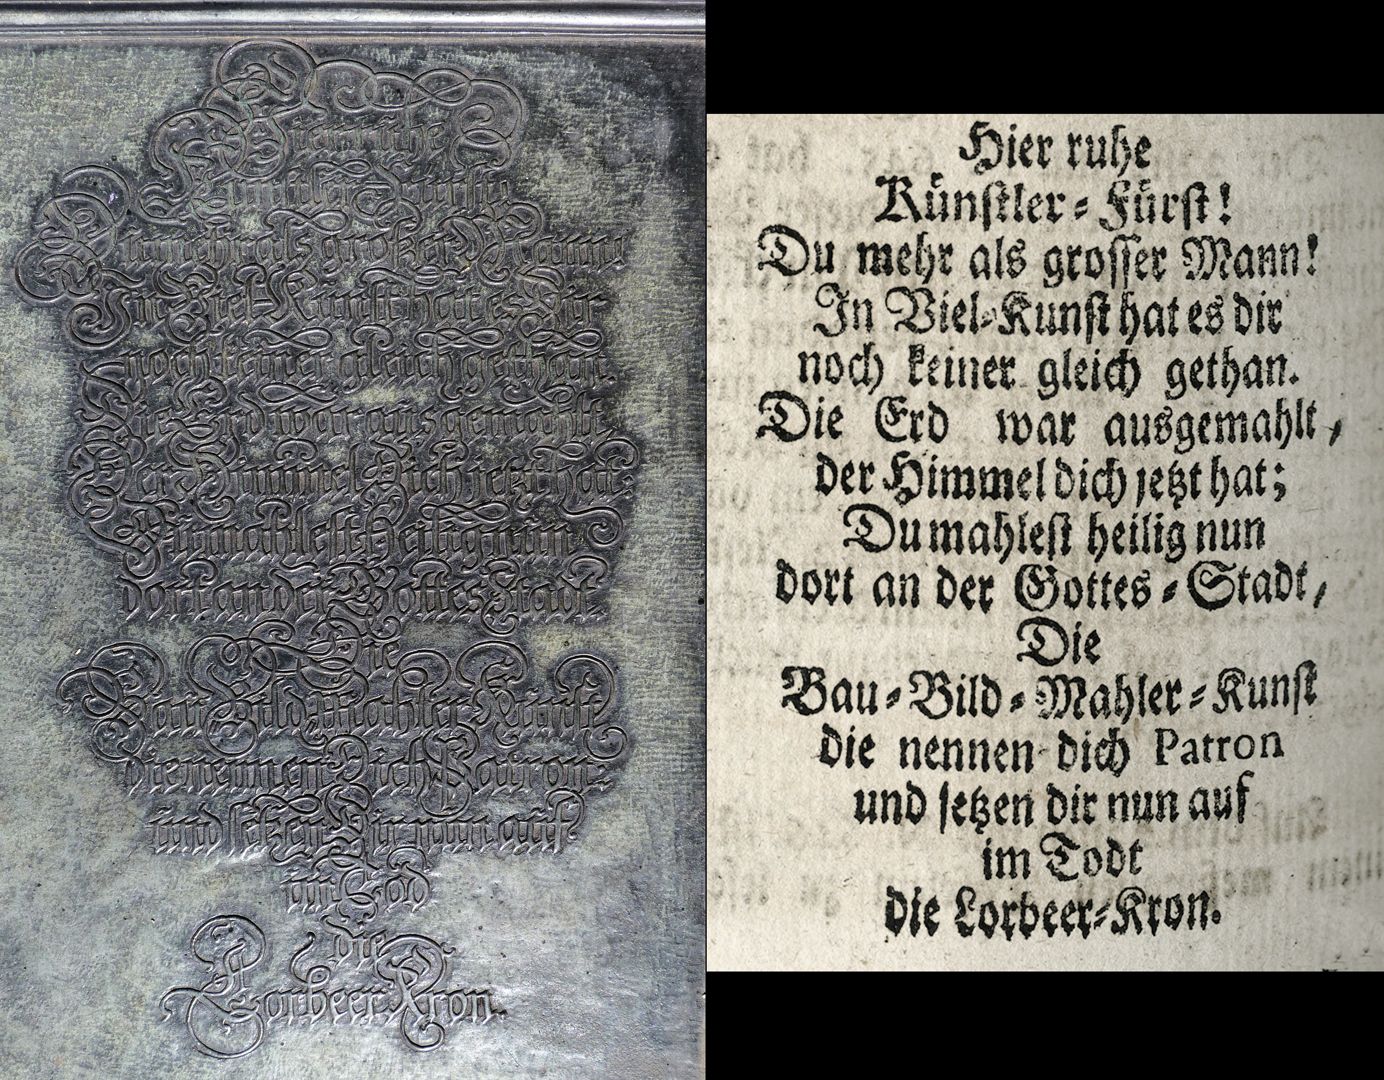 Hier ruhe
Künstler-Fürst
Du mehr als großer Mann!
In Viel-Kunst hatt es Dir
noch keiner gleich gethan.
Die Erd war ausgemahlt
Der Himmel Dich jetzt hatt:
Du mahlest heilig nun
dort an der Gottes Stadt.
Die
Bau Bild, Mahler Kunst
die nennen Dich Patron.
und setzen Dir nun auf
im Tod
die
Lorbeer Kron.
Hier ruhe
Künstler-Fürst!
Du mehr als grosser Mann!
In Viel-Kunst hat es dir
noch keiner gleich gethan.
Die Erd war ausgemahlt,
der Himmel dich jetzt hat;
Du mahlest heilig nun
dort an der Gottes-Stadt,
Die
Bau-Bild-Mahler-Kunst
die nennen dich Patron
und setzen dir nun auf
im Todt
die Lorbeer-Kron.